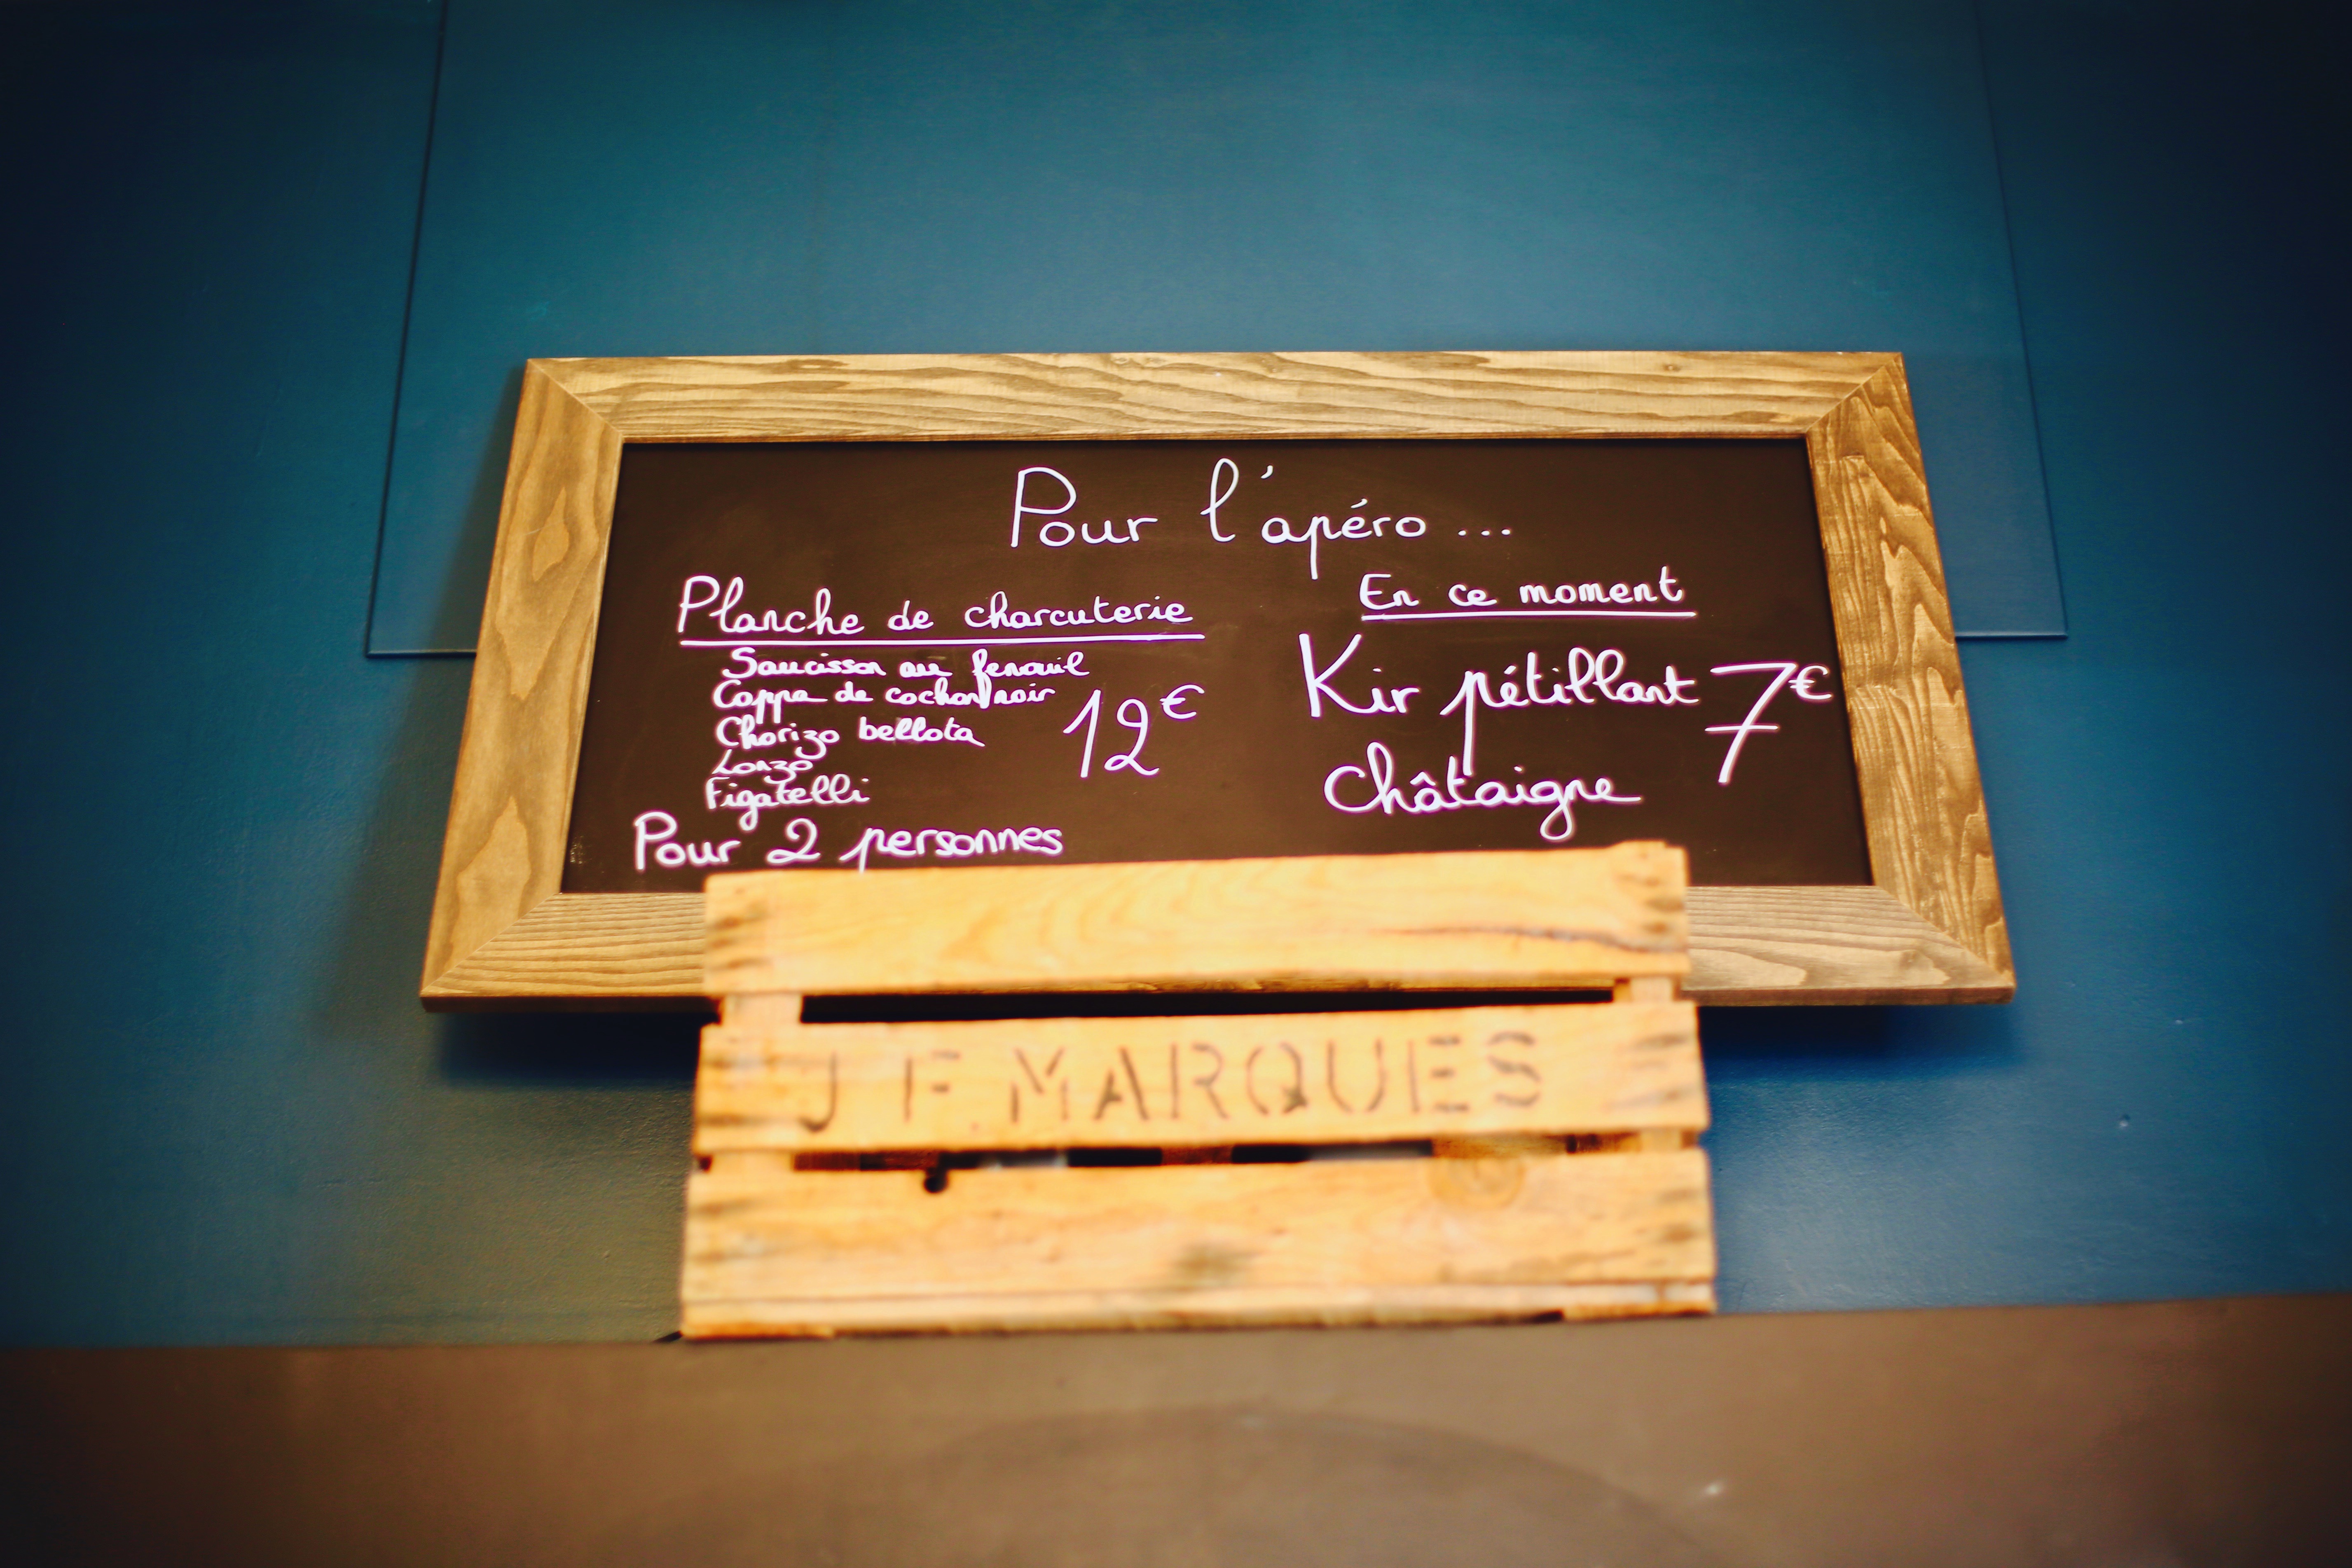 Pour l'apéro...
Planche de charcuterie
Saucisson au fenouil
Coppa de cochon noir
Chorizo bellota
Lonzo
Figatelli
12€
Pour 2 personnes
En ce moment
Kir pétillant 7€
Châtaigne
J F.MARQUES